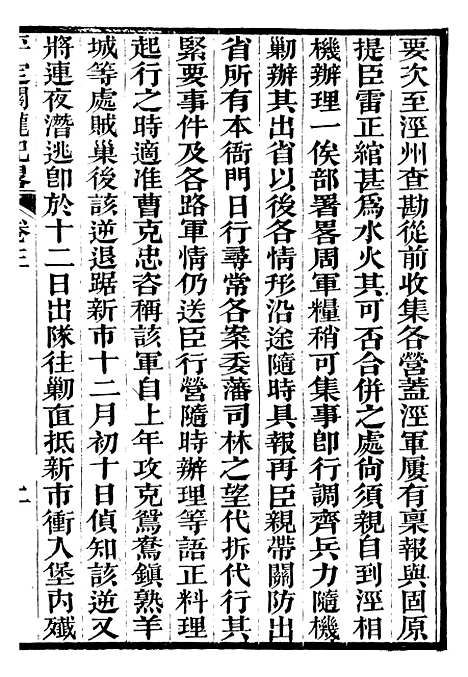 要次至涇州查勘從前收集各營蓋涇軍屢有稟報與固原
提臣雷正綰甚爲水火其可否合併之處尙須親自到涇相
機辦理一俟部署畧周軍糧稍可集事卽行調齊兵力隨機
勦辦其出省以後各情形沿途隨時具報再臣親帶關防出
省所有本衙門日行尋常各案委藩司林之望代拆代行其
緊要事件及各路軍情仍送臣行營隨時辦理等語正料理
起行之時適准曹克忠咨稱該軍自上年攻克鴛鴦鎮熟羊
城等處賊巢後該逆退踞新市十二月初十日偵知該逆又
將連夜潛逃卽於十二日出隊往勦直抵新市衝入堡內殲
平定關隴紀畧 卷三